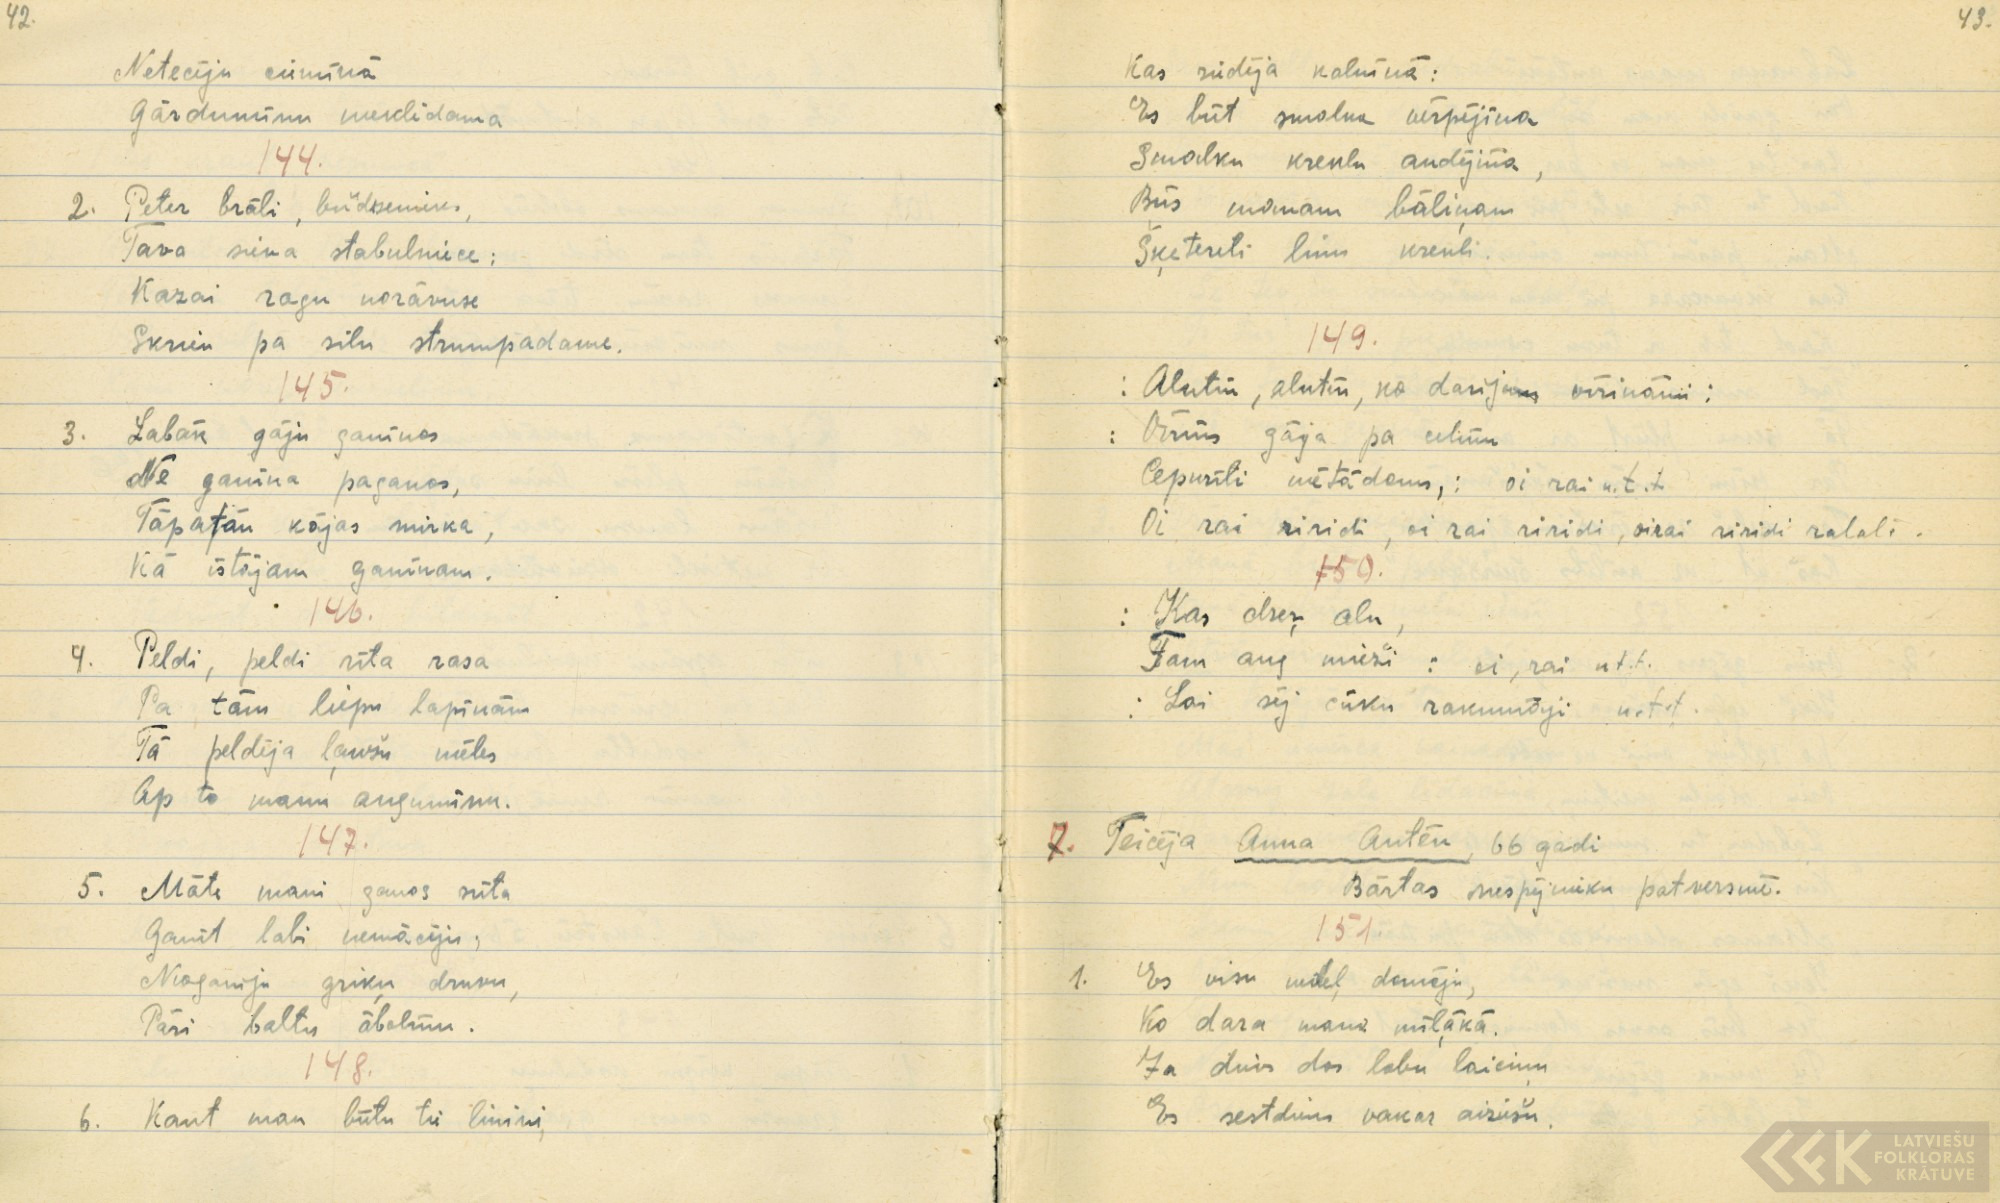 42.
Netecēju ciemiņā
Gārdumiņu meklēdama
144.
2. Peter brāli, būdzenieks,
Tava sieva stabulniece:
Kazai ragu norāvuse
Skrien pa silu strumpādame.
145.
3. Labāk gāju ganiņos
Nē ganiņa paganos,
Tāpatān kājas mirka,
Kā īstējam ganiņam.
146.
4. Peldi, peldi rīta rasa
Pa tām liepu lapiņām
Tā peldēja ļaužu mēles
Ap to manu augumiņu.
147.
5. Māte mani ganos sūta
Ganīt labi nemācēju;
Noganīju griķu druvu,
Pāri baltu āboliņu.
148.
6. Kaut man būtu tie liniņi,
43.
Kas ziedēja kalniņā:
Es būt smalka vērpējiņa
Smalku kreklu audējiņa,
Būs manam bāliņam
Šķetereti linu krekli.
149.
: Alutiņ, alutiņ, ko darījam vīriņām :
: Vīriņis gāja pa celiņu
Cepurīti mētādams, : oi rai u.t.t.
Oi rai riridi, oi rai riridi, oirai riridi ralali.
150.
: Kas dzeŗ alu,
Tam aug mieži : oi, rai u t.t.
: Lai sēj cūku rakumēji u.t.t.
7. Teicēja Anna Autēn, 66 gadi
Bārtas nespējnieku patversmē.
151.
1. Es visu nedeļ domāju,
Ko dara mana mīļākā.
Ja dievs dos labu laiciņu
Es sestdien vakar aiziešu.
LATVIEŠU
FOLKLORAS
KRĀTUVE